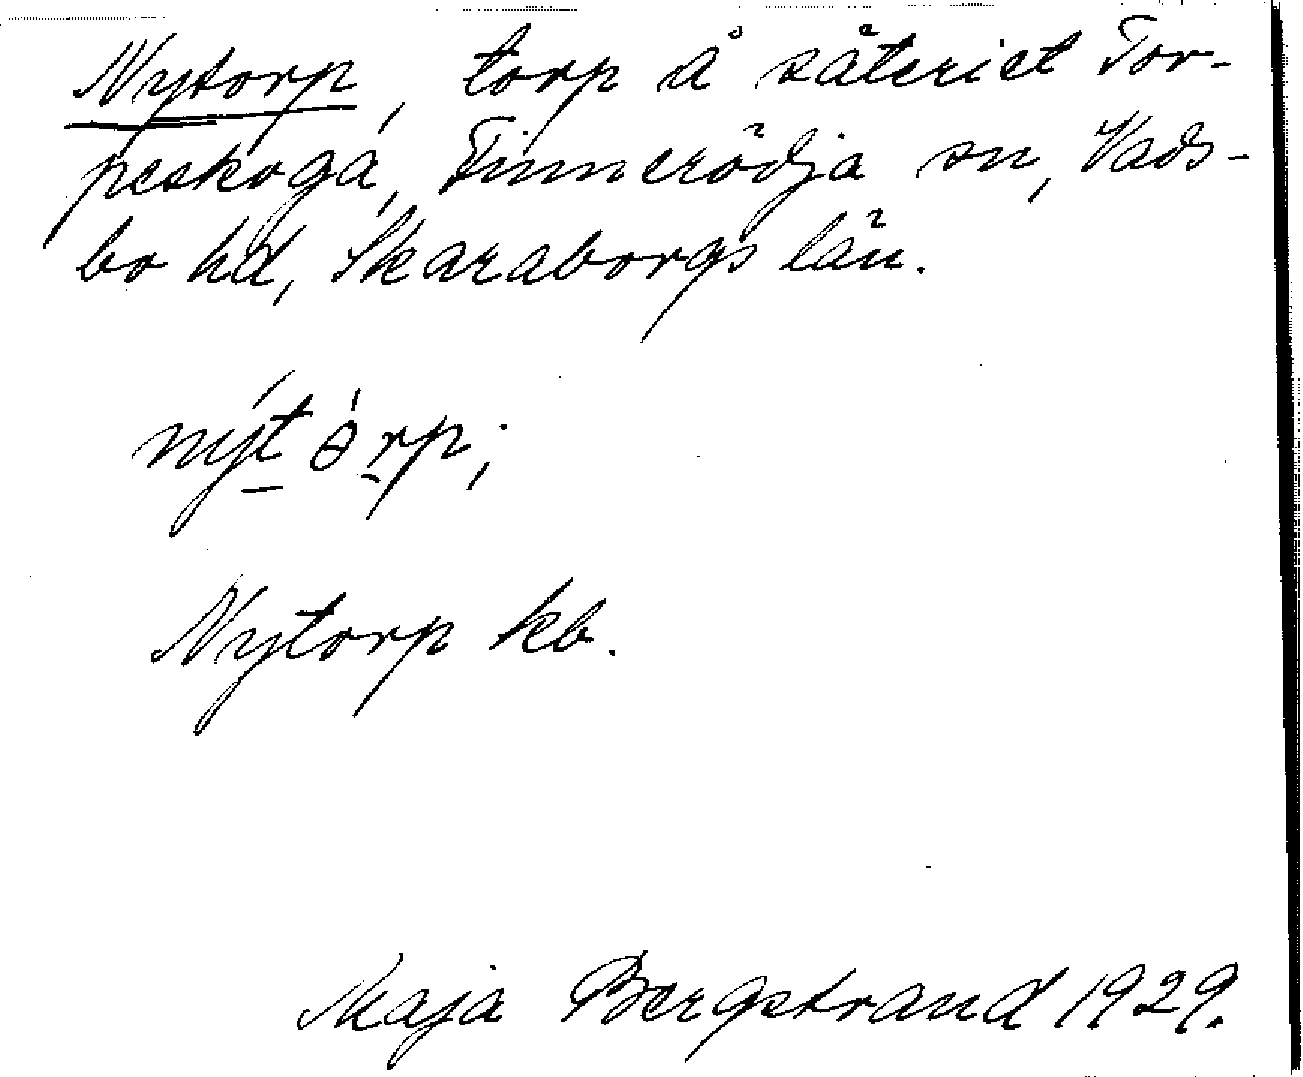 Nytorp, torp å säteriet Tor-
peskoga, Finnerödja sn, Vads-
bo hd, Skaraborgs län.
nýt ɵ́rp;
Nytorp kb.
Maja Bergstrand 1929.